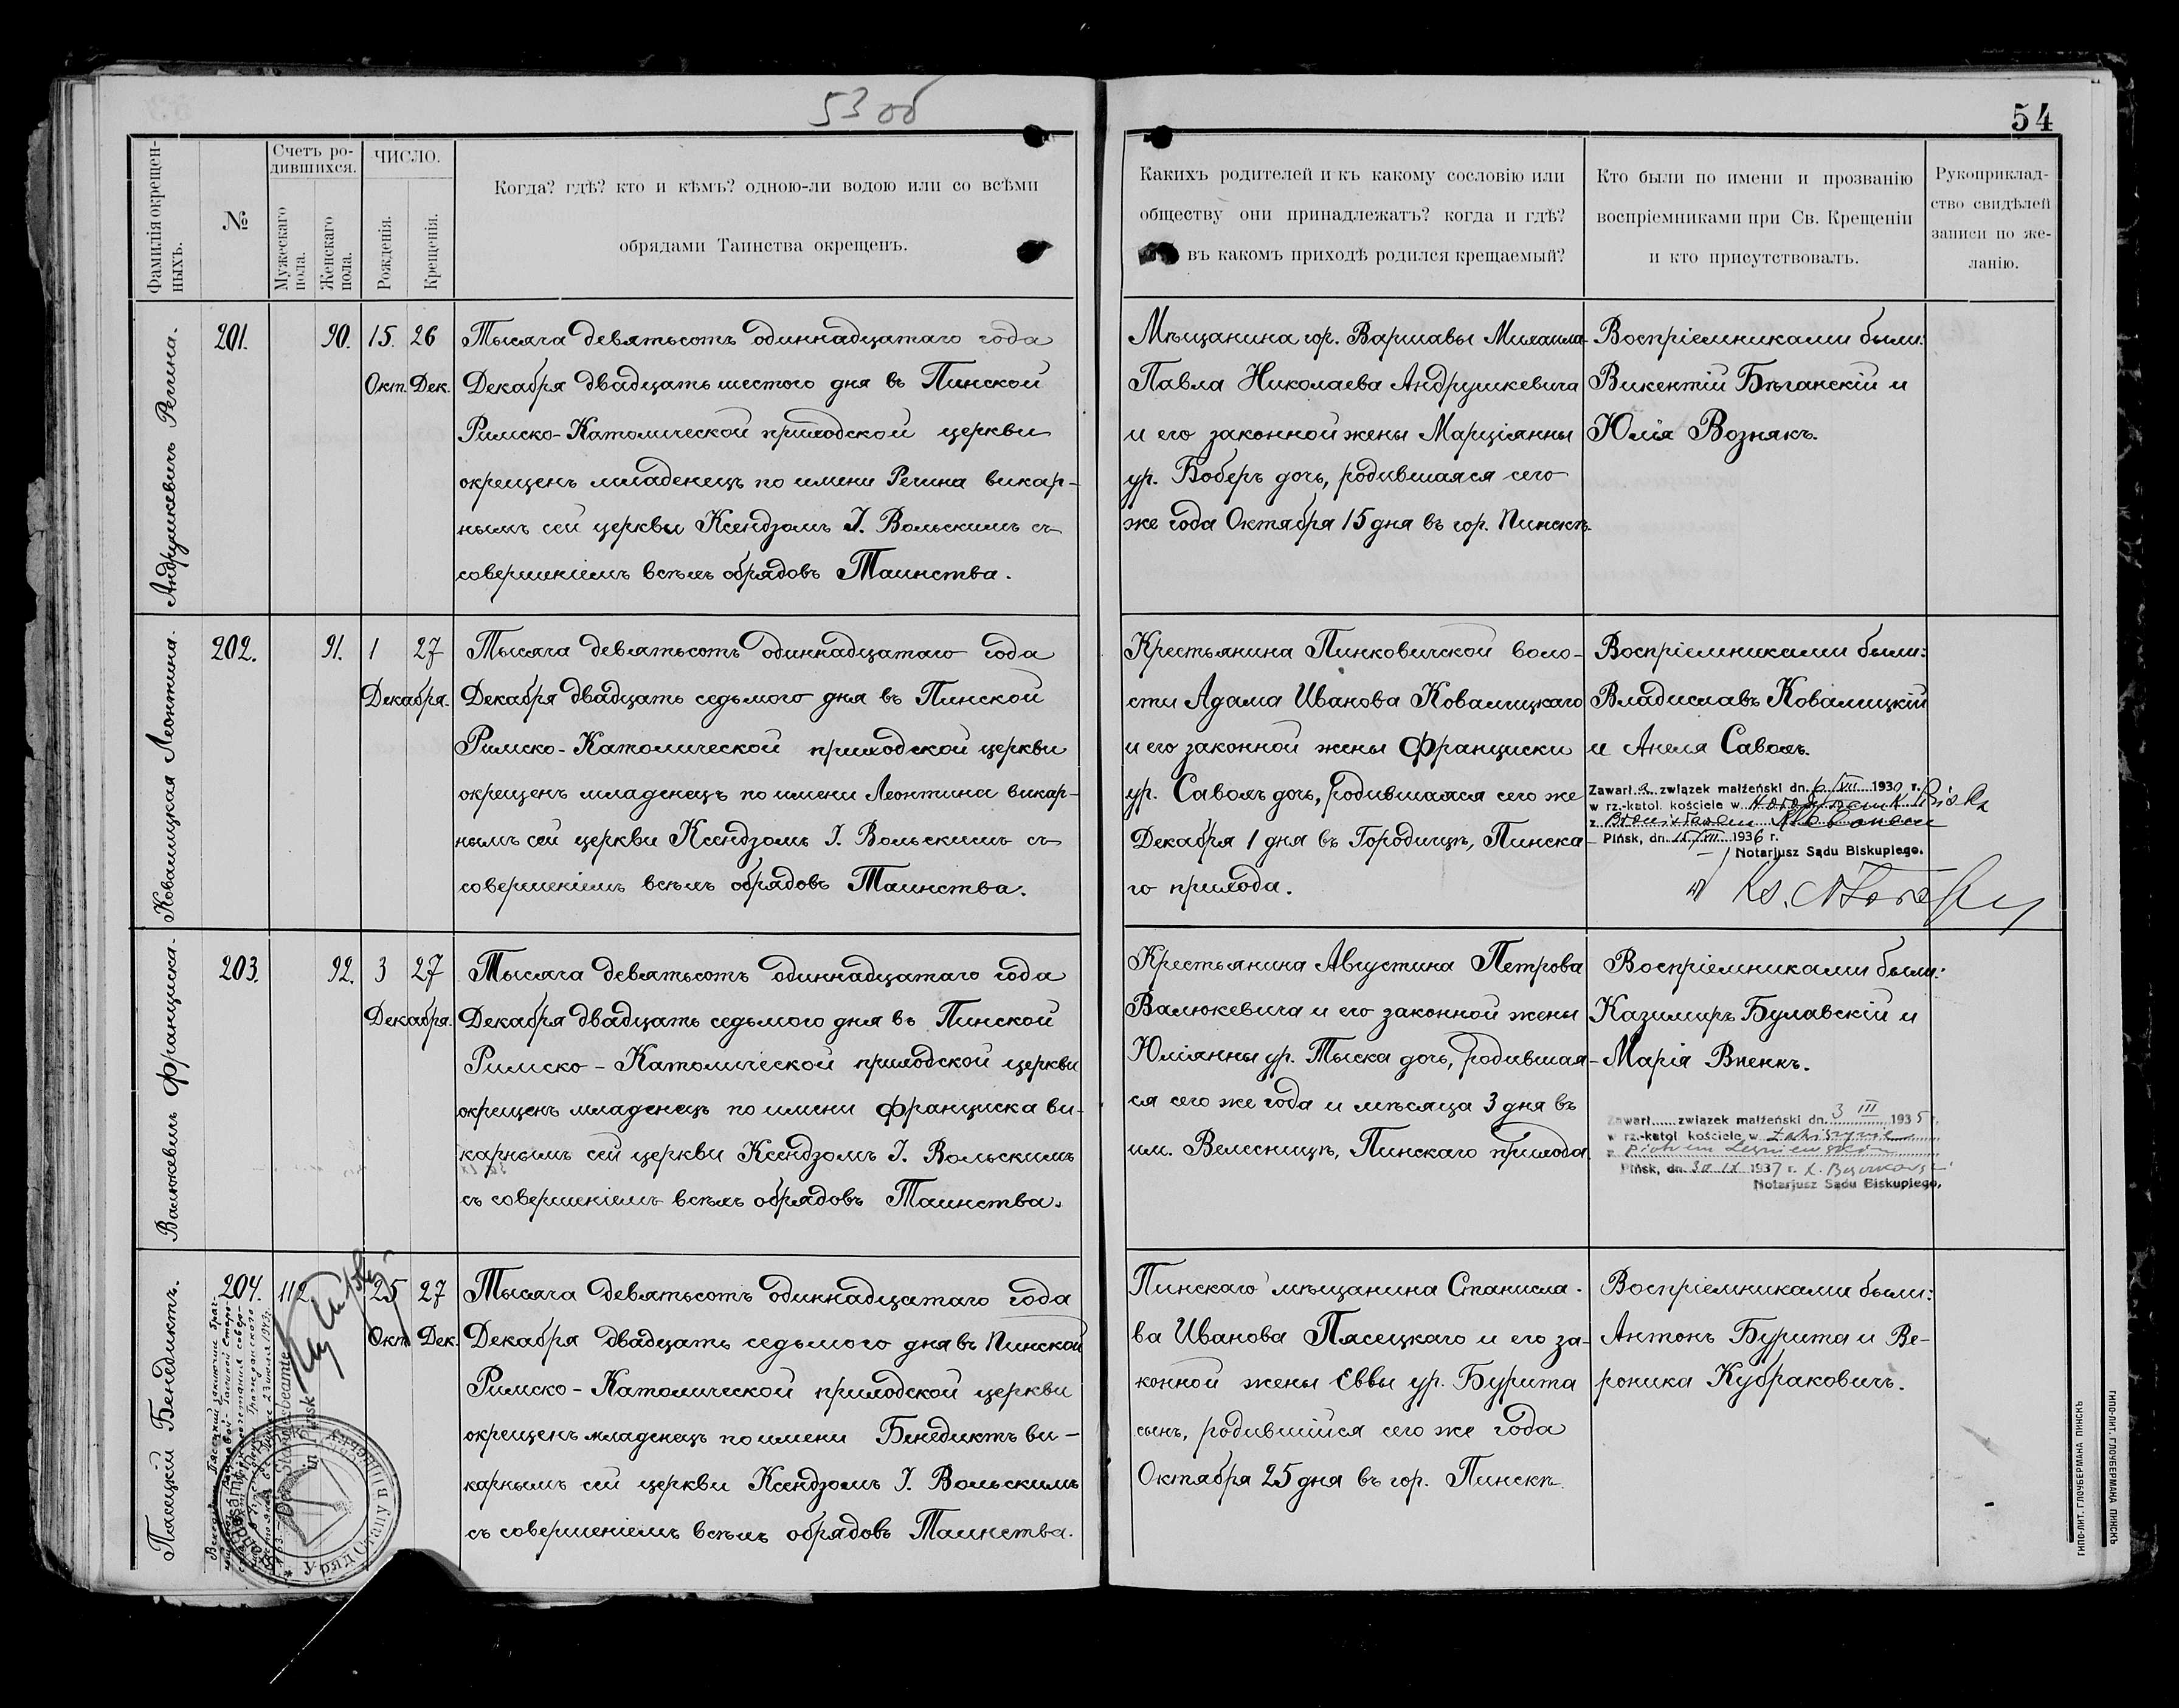 53 об
54
Фамилія окрещен-
ныхъ.
№
Счетъ ро-
дившихся.
Мужескаго
пола.
Женскаго
пола.
ЧИСЛО.
Рожденія.
Крещенія.
Когда? гдѣ? кто и кѣмъ? одною-ли водою или со всѣми
обрядами Таинства окрещенъ.
Какихъ родителей и къ какому сословію или
обществу они принадлежатъ? когда и гдѣ?
въ какомъ приходѣ родился крещаемый?
Кто были по имени и прозванію
воспріемниками при Св. Крещеніи
и кто присутствовалъ.
Рукоприклад-
ство свидѣлей
записи по же-
ланію.
Андрушкевичъ Регина.
201.
90.
15. 26
Окт. Дек.
Тысяча девятьсотъ одиннадцатаго года
Декабря двадцать шестого дня въ Пинской
Римско-Католической приходской церкви
окрещенъ младенецъ по имени Регина викар-
нымъ сей церкви Ксендзомъ І. Вольскимъ съ
совершеніемъ всѣхъ обрядовъ Таинства.
Мѣщанина гор. Варшавы Михаила-
Павла Николаева Андрушкевича
и его законной жены Марціянны
ур. Боберъ дочь, родившаяся сего
же года Октября 15 дня въ гор. Пинскѣ.
Воспріемниками были:
Викентій Бѣганскій и
Юлія Вознякъ.
Ковалицкая Леонтина.
202.
91.
1 27
Декабря.
Тысяча девятьсотъ одиннадцатаго года
Декабря двадцать седьмого дня въ Пинской
Римско-Католической приходской церкви
окрещенъ младенецъ по имени Леонтина викар-
нымъ сей церкви Ксендзомъ І. Вольскимъ съ
совершеніемъ всѣхъ обрядовъ Таинства.
Крестьянина Пинковичской воло-
сти Адама Иванова Ковалицкаго
и его законной жены Франциски
ур. Саволь дочь, родившаяся сего же
Декабря 1 дня въ Городищѣ, Пинска-
го прихода.
Воспріемниками были:
Владиславъ Ковалицкій
и Анеля Саволь.
Zawarł a związek małżeński dn. 6/VII 1930 r.
w rz.-katol. kościele w
z Bronisławem
Pińsk, dn. 15/VII 1936 r.
Notarjusz Sądu Biskupiego.
Ks.
Валюкевичъ Франциска.
203.
92.
3 27
Декабря.
Тысяча девятьсотъ одиннадцатаго года
Декабря двадцать седьмого дня въ Пинской
Римско-Католической приходской церкви
окрещенъ младенецъ по имени Франциска ви-
карнымъ сей церкви Ксендзомъ І. Вольскимъ
съ совершеніемъ всѣхъ обрядовъ Таинства.
Крестьянина Августина Петрова
Валюкевича и его законной жены
Юліянны ур. Тыска дочь, родившая-
ся сего же года и мѣсяца 3 дня въ
им. Велесницѣ, Пинскаго прихода.
Воспріемниками были:
Казимиръ Булавскій и
Марія Вненкъ.
Zawarł związek małżeński dn. 3 III 1935 r.
w rz.-katol kościele w Łohiszynie
z Piotrem Leśniewskim
Pińsk, dn. 30 IX 1937 r.
Notarjusz Sądu Biskupiego.
Пясецкій Бенедиктъ.
204.
112
25 27
Окт. Дек.
Тысяча девятьсотъ одиннадцатаго года
Декабря двадцать седьмого дня въ Пинской
Римско-Католической приходской церкви
окрещенъ младенецъ по имени Бенедиктъ ви-
карнымъ сей церкви Ксендзомъ І. Вольскимъ
съ совершеніемъ всѣхъ обрядовъ Таинства.
Пинскаго мѣщанина Станисла-
ва Иванова Пясецкаго и его за-
конной жены Еввы ур. Бурита
сынъ, родившійся сего же года
Октября 25 дня въ гор. Пинскѣ.
Воспріемниками были:
Антонъ Бурита и Ве-
роника Кубраковичъ.
Der Standesbeamte
in Pinsk
ТИПО-ЛИТ. ГЛОУБЕРМАНА ПИНСКЪ
ТИПО-ЛИТ. ГЛОУБЕРМАНА ПИНСКЪ